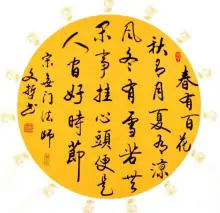 春有百花
秋有月夏有凉
风冬有雪若无
闲事挂心頭便是
人间好時節
宗无门法师
文哲书